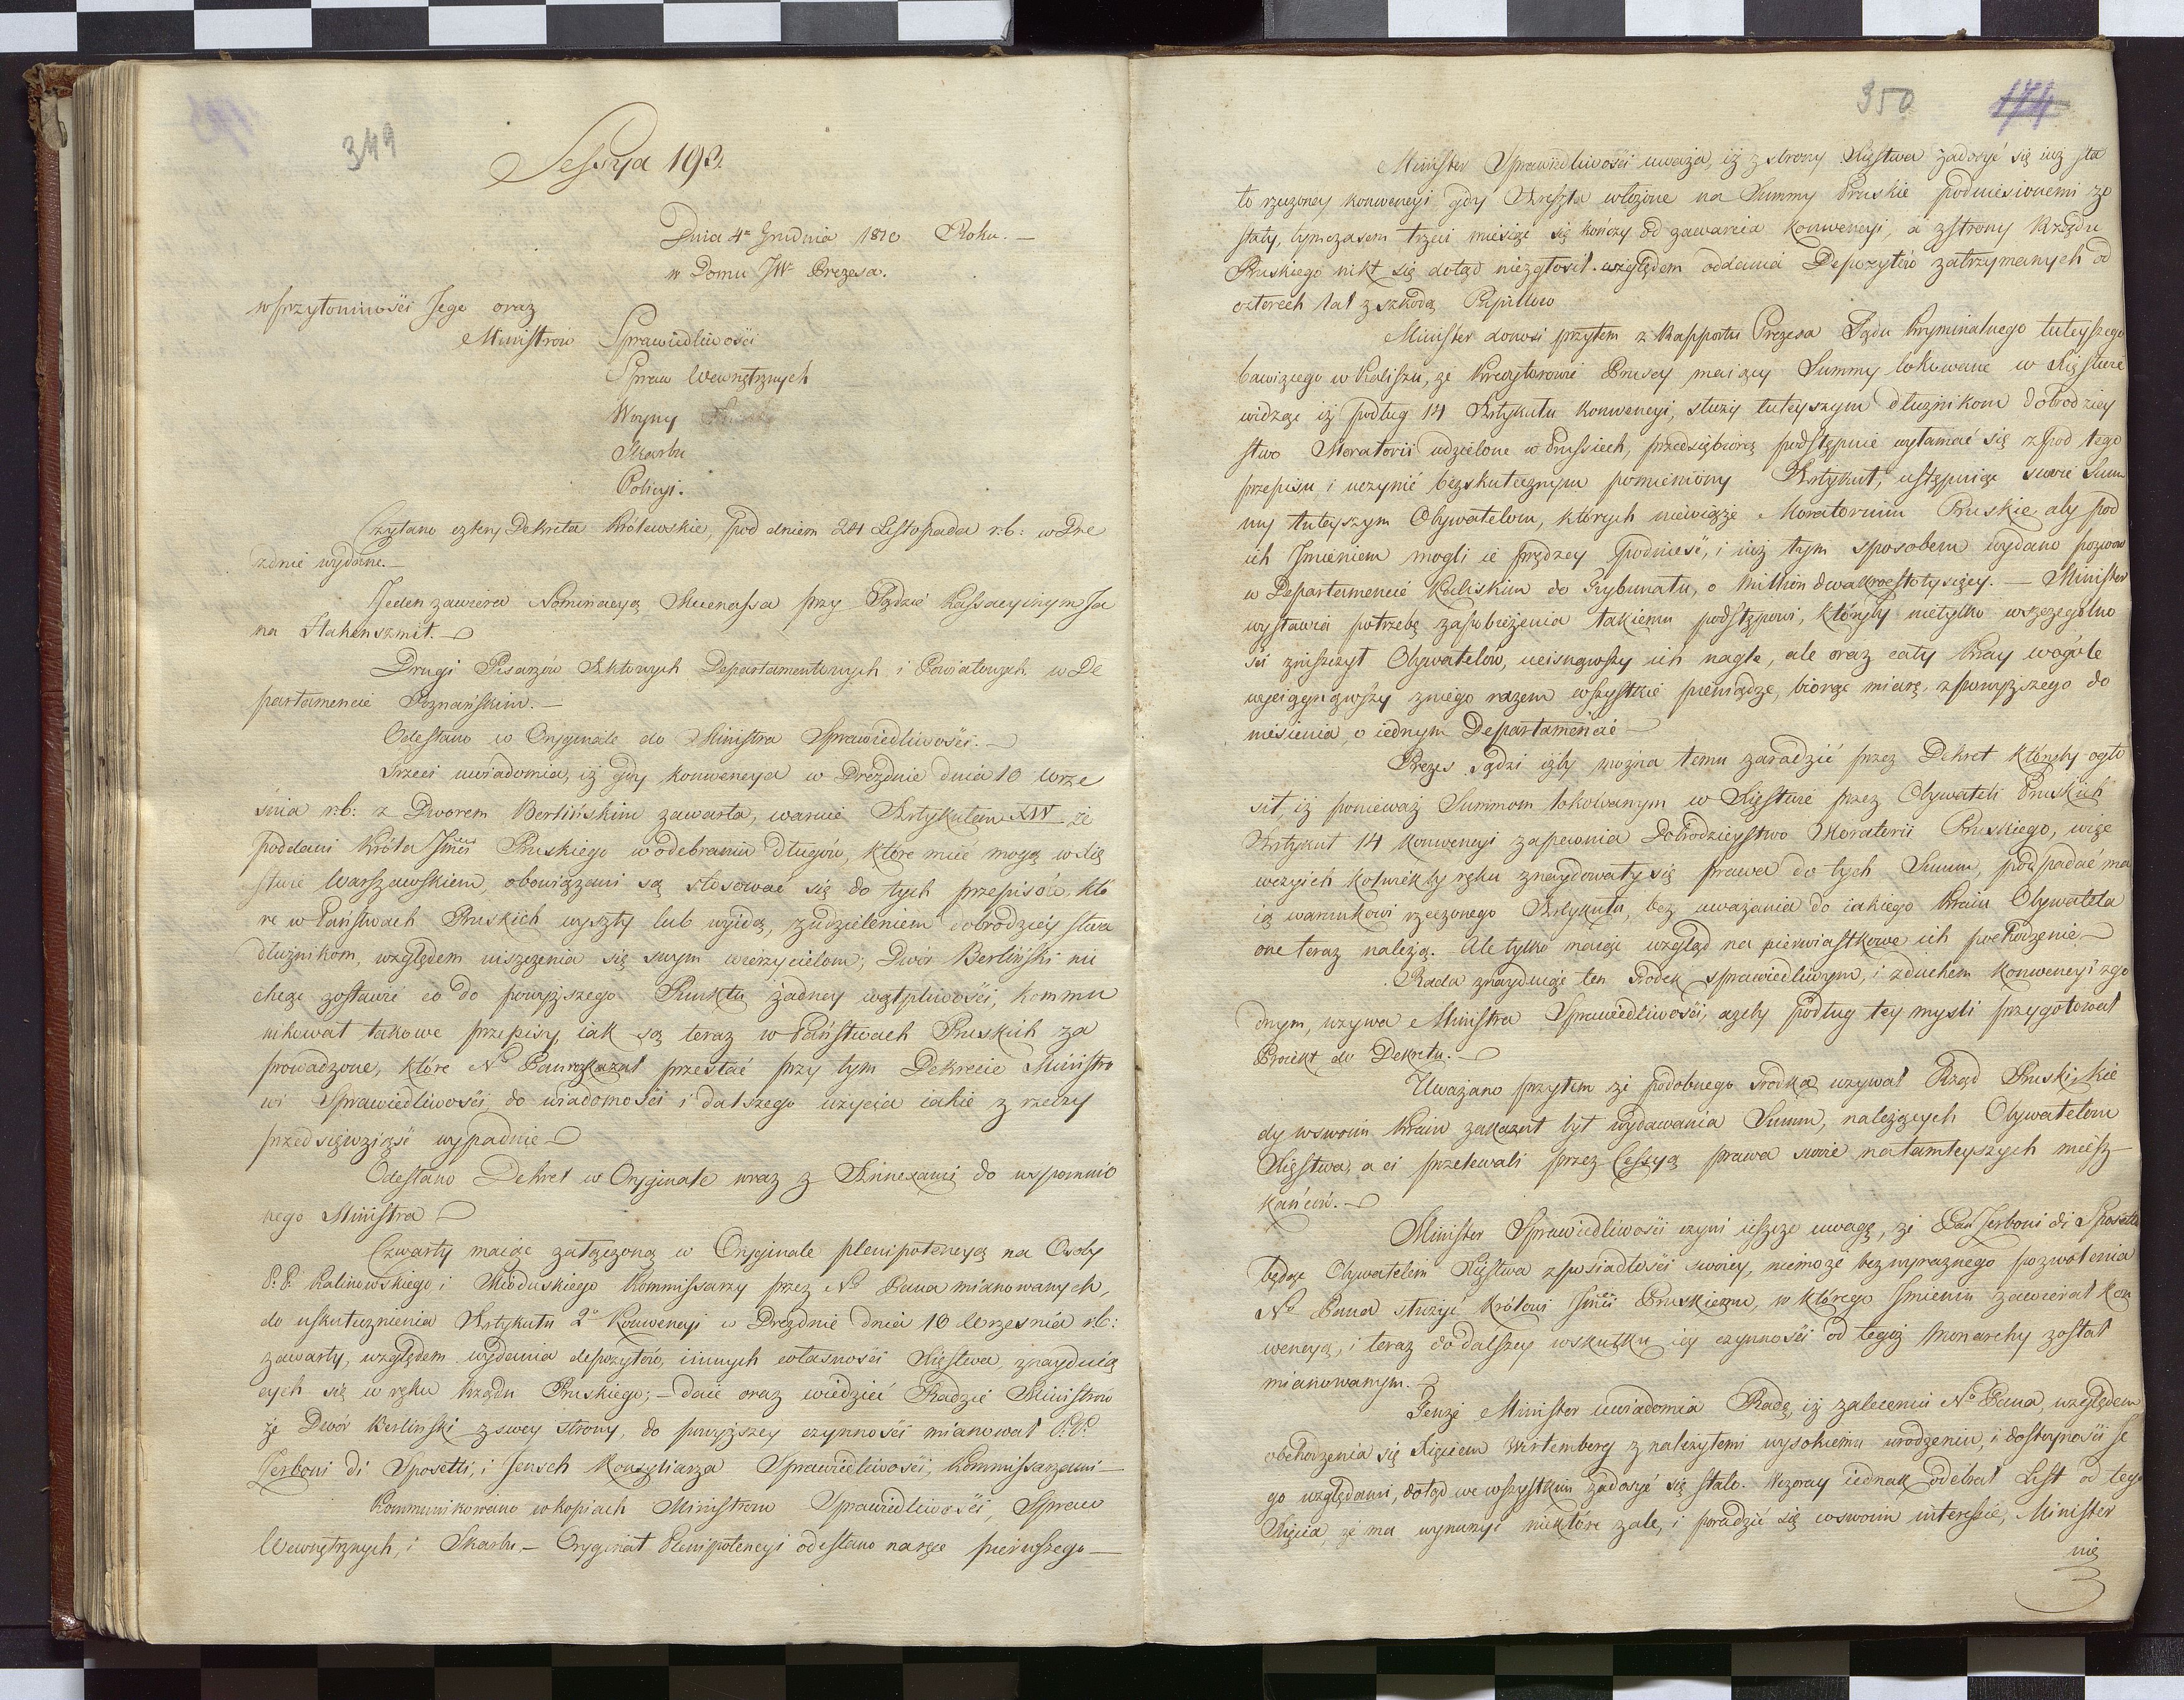 349
Sessya 193.
Dnia 4ᵃ Grudnia 1810 Roku. —
w Domu JWº Prezesa.
w przytomności Jego oraz
Ministrów Sprawiedliwości
Spraw Wewnętrznych
Woyny
Skarbu
Policyi.
Czytano cztery Dekreta Królewskie, pod dniem 24 Listopada r.b: w Dre
zdnie wydane. —
Jeden zawiera Nominacyą Mecenassa przy Sądzie Kassacyinym Ja
na Stahenszmit. —
Drugi Pisarzów Aktowych Departamentowych i Powiatowych w De
partamencie Poznańskim. —
Odesłano w Oryginale do Ministra Sprawiedliwości. —
Trzeci uwiadomia, iż gdy konwencya w Dreznie dnia 10 Wrze
śnia r.b: z Dworem Berlińskim zawarta, warnie Artykułem XIV że
poddani Króla Jmci Pruskiego w odebraniu długów, które mieć mogą w Xię
stwie Warszawskiem, obowiązani są stosować się do tych przepisów, któ
re w Państwach Pruskich wyszły lub wyidą, z udzieleniem dobrodzieystwa
dłużnikom, względem uiszczenia się swym wierzycielom; Dwór Berliński nie
chcąc zostawić co do powyższego Punktu żadney wątpliwości, kommu
nikował takowe przepisy iak są teraz w Państwach Pruskich za
prowadzone, które Nº Pan rozkazał przesłać przy tym Dekrecie Ministro
wi Sprawiedliwości do wiadomości i dalszego użycia iakie z rzeczy
przedsięwziąść wypadnie —
Odesłano Dekret w Oryginale wraz z Annexami do wspomnio
nego Ministra —
Czwarty maiąc załączoną w Oryginale plenipotencyą na Osoby
P.P. Kalinowskiego i Mioduskiego Kommissarzy przez Nº Pana mianowanych,
do uskutecznienia Artykułu 2º Konwencyi w Dreznie dnia 10 Września r.b:
zawarty, względem wydania depozytów, i innych własności Xięstwa, znayduią
cych się w ręku Rządu Pruskiego; — daie oraz wiedzieć Radzie Ministrów
że Dwór Berliński z swey strony, do powyższey czynności mianował P.P.
Zerboni di Sposetti, i Jensch Konsyliarza Sprawiedliwości, Kommissarzami —
Kommunikowano w kopiach Ministrom Sprawiedliwości, Spraw
Wewnętrznych, i Skarbu, — Oryginał Plenipotencyi odesłano na ręce pierwszego —
350 174
Minister Sprawiedliwości uważa, iż z strony Xięstwa zadosyć się iuż sta
ło rzeczoney konwencyi gdy Areszta włożone na Summy Pruskie podniesionemi zo
stały, tymczasem trzeci miesiąc się kończy od zawarcia Konwencyi, a z strony Rządu
Pruskiego nikt się dotąd niezgłosił względem oddania Depozytów zatrzymanych od
czterech lat z szkodą Pupillów
Minister donosi przytem z Rapportu Prezesa Sądu Kryminalnego tuteyszego
bawiącego w Kaliszu, że Kredytorowie Pruscy maiący Summy lokowane w Xięstwie
widząc iż podług 14 Artykułu Konwencyi, służy tuteyszym dłużnikom dobrodziey
stwo Moratorii udzielone w Prussiech, przedsiębiorą podstępnie wyłamać się z pod tego
przepisu i uczynić bezskutecznym pomieniony Artykuł, ustępuiąc swoie Sum
my tuteyszym Obywatelom, których niewiąże Moratorium Pruskie aby pod
ich Imieniem mogli ie prędzey podnieść, i iuż tym sposobem wydano pozwów
w Departamencie Kaliskim do Trybunału, o Million dwakroć sto tysięcy. — Minister
wystawia potrzebę zapobieżenia takiemu podstępowi, któryby nietylko w szczególno
ści zniszczył Obywatelów, ucisnąwszy ich nagle, ale oraz cały kray wogóle
wyciągnąwszy z niego razem wszystkie pieniądze, biorąc miarę, z powyższego do
niesienia, o iednym Departamencie —
Prezes Sądzi iżby można temu zaradzić przez Dekret któryby ogło
sił, iż ponieważ Summom lokowanym w Xięstwie przez Obywateli Pruskich
Artykuł 14 Konwencyi zapewnia Dobrodzieystwo Moratorii Pruskiego, więc
w czyich kolwiekby ręku znaydowały się prawa do tych Summ, podpadać ma
ią warunkowi rzeczonego Artykułu, bez uważania do iakiego kraiu Obywatela
one teraz należą. Ale tylko maiąc wzgląd na pierwiastkowe ich pochodzenie —
Rada znayduiąc ten środek sprawiedliwym, i z duchem konwencyi zgo
dnym, wzywa Ministra Sprawiedliwości, ażeby podług tey myśli przygotował
Proiekt do Dekretu. —
Uważano przytem że podobnego środka używał Rząd Pruski, kie
dy w swoim kraiu zakazał był wydawania Summ, należących Obywatelom
Xięstwa, a ci przelewali przez Cessyą prawa swoie na tamteyszych miesz
kańców. —
Minister Sprawiedliwości czyni ieszcze uwagę, że Pan Zerboni di Sposetti
będąc Obywatelem Xięstwa z posiadłości swoiey, niemoże bez wyraznego pozwolenia
Nº Pana służyć Królowi Jmci Pruskiemu, w którego Imieniu zawierał Kon
wencyą, i teraz do dalszey w skutku iey czynności od tegoż Monarchy został
mianowanym. —
Tenże Minister uwiadomia Radę, iż zaleceniu Nº Pana, względem
obchodzenia się Xięciem Wirtemberg z należytemi wysokiemu urodzeniu, i dostoyności Je
go względami, dotąd we wszystkim zadosyć się stało. Wczoray iednak odebrał List od tego
Xięcia, że ma wynurzyć niektóre żale, i poradzić się w swoim interessie, Minister
nie